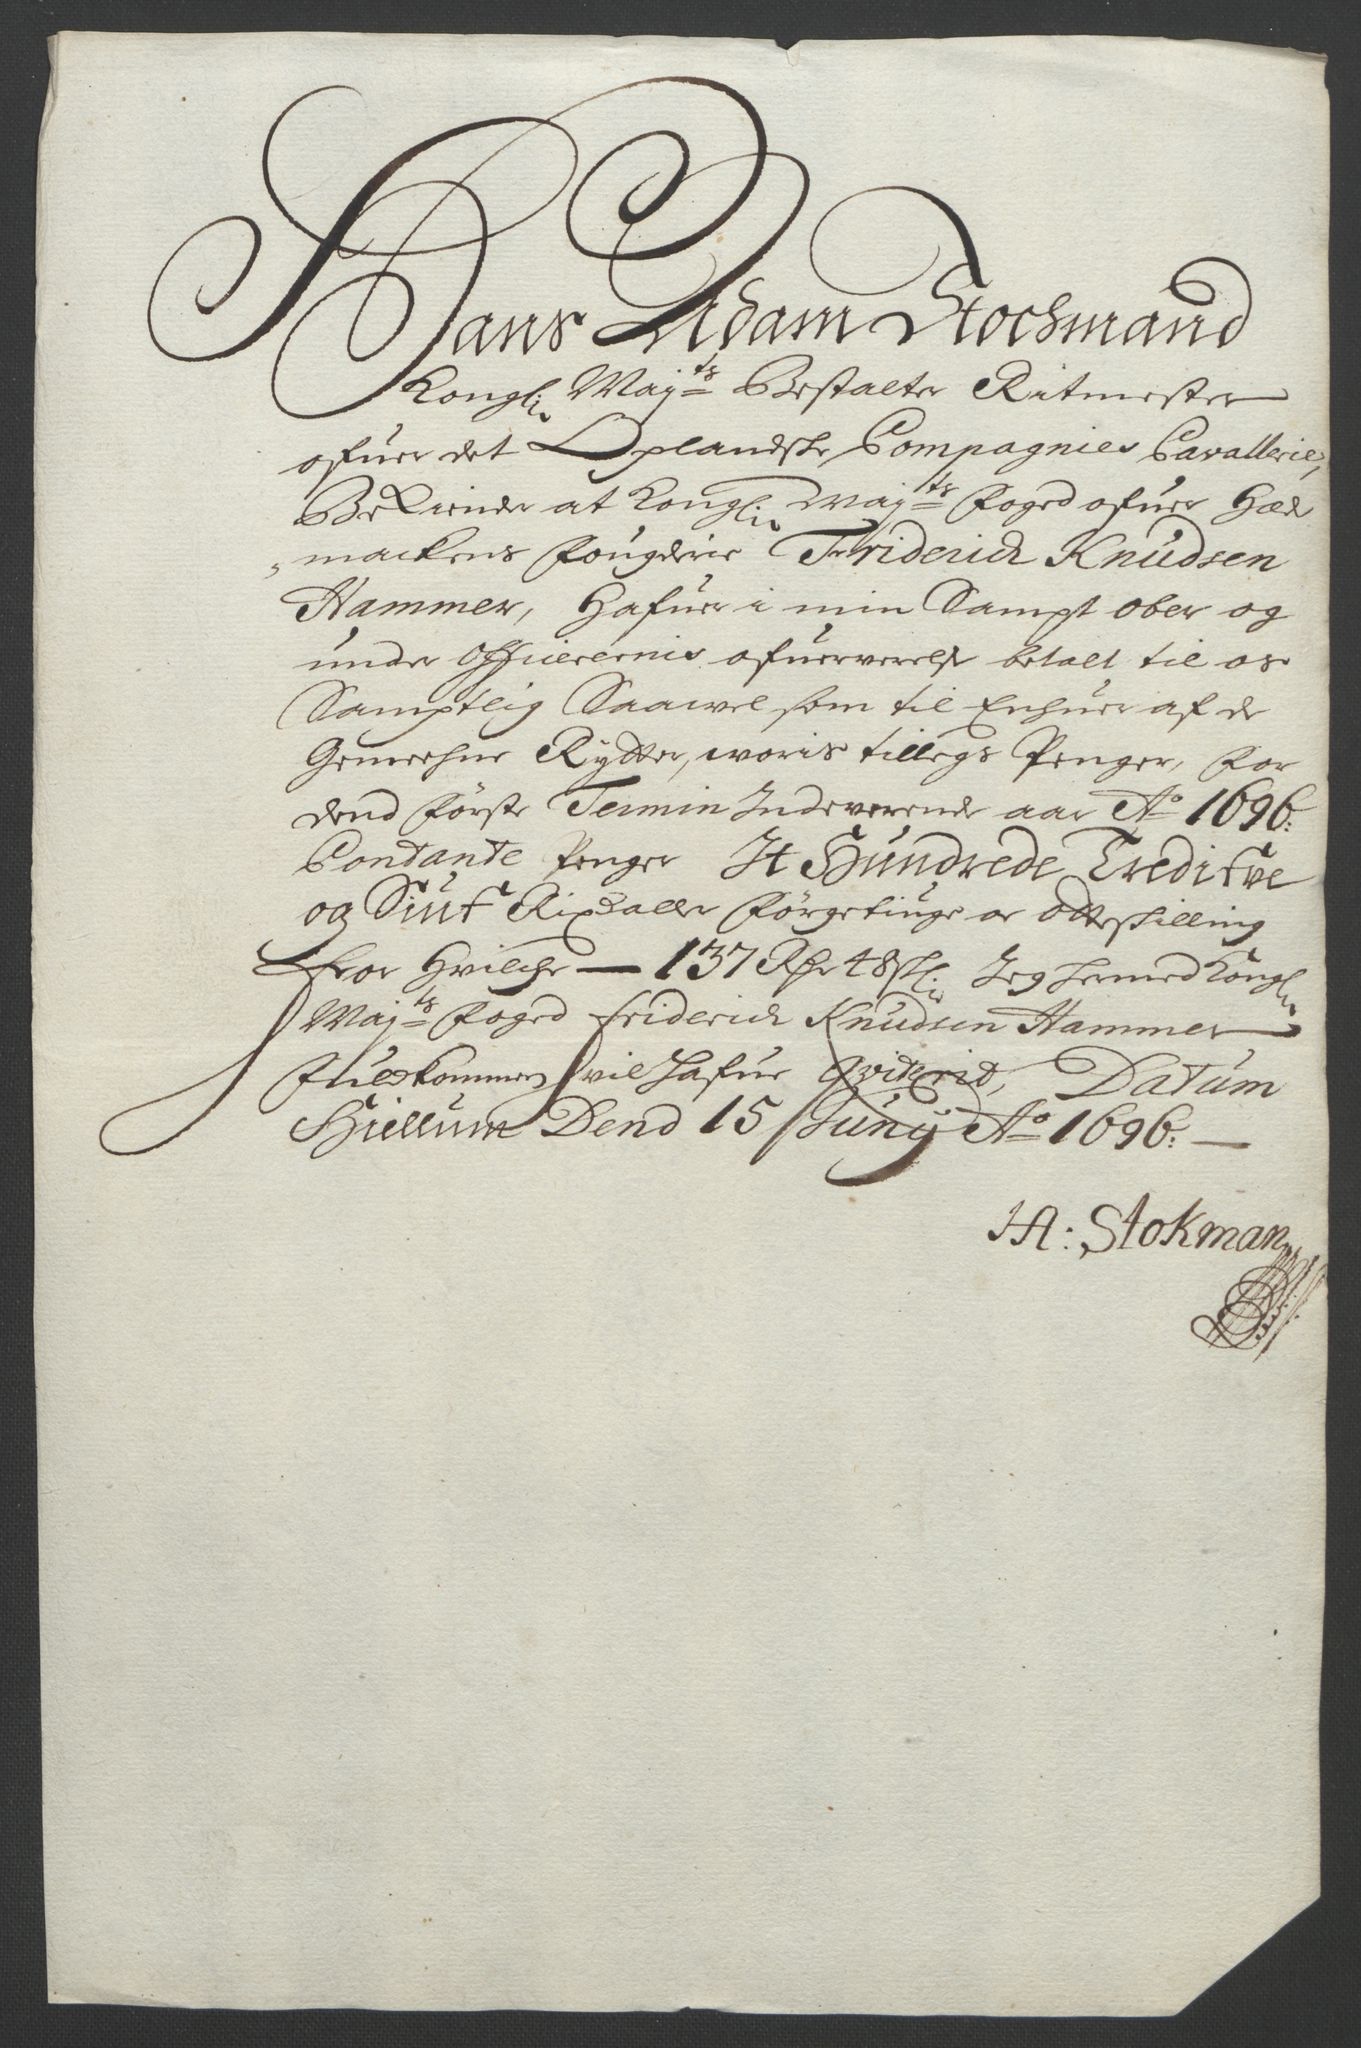 Hans Adam Stochmand
Kongl: Maÿ:ts Bestalter Ritmester
ofuer det Oplandske Compagnies Cavallerie,
Bekiender at Kongl: Maÿ:ts Foged ofuer Hede
mackens Fougderie Friderich Knudsen
Hammer, Hafuer i min Sampt ober og
under Officerernis ofuerverelse betalt til os
Samptlig Saawel som til Enhuer af de
Gemeehne Rÿtter, woris tillegs Penger, for
dend Förste Termin Indeverende aar Ao 1696:
Contante Penger Et Hundrede Tredifve
og Siuf Rixdaller förgetiuge oc Otte skilling
For Hvilche — 137 Rdr 48 sk: Jeg hermed Kongl:
Maÿ:ts Foged Friderich Knudsen Hammer
fuldkommen vil hafue Qviterid, Datum
Hiellum Dend 15 Junÿ Ao 1696: —
HA: Stokman